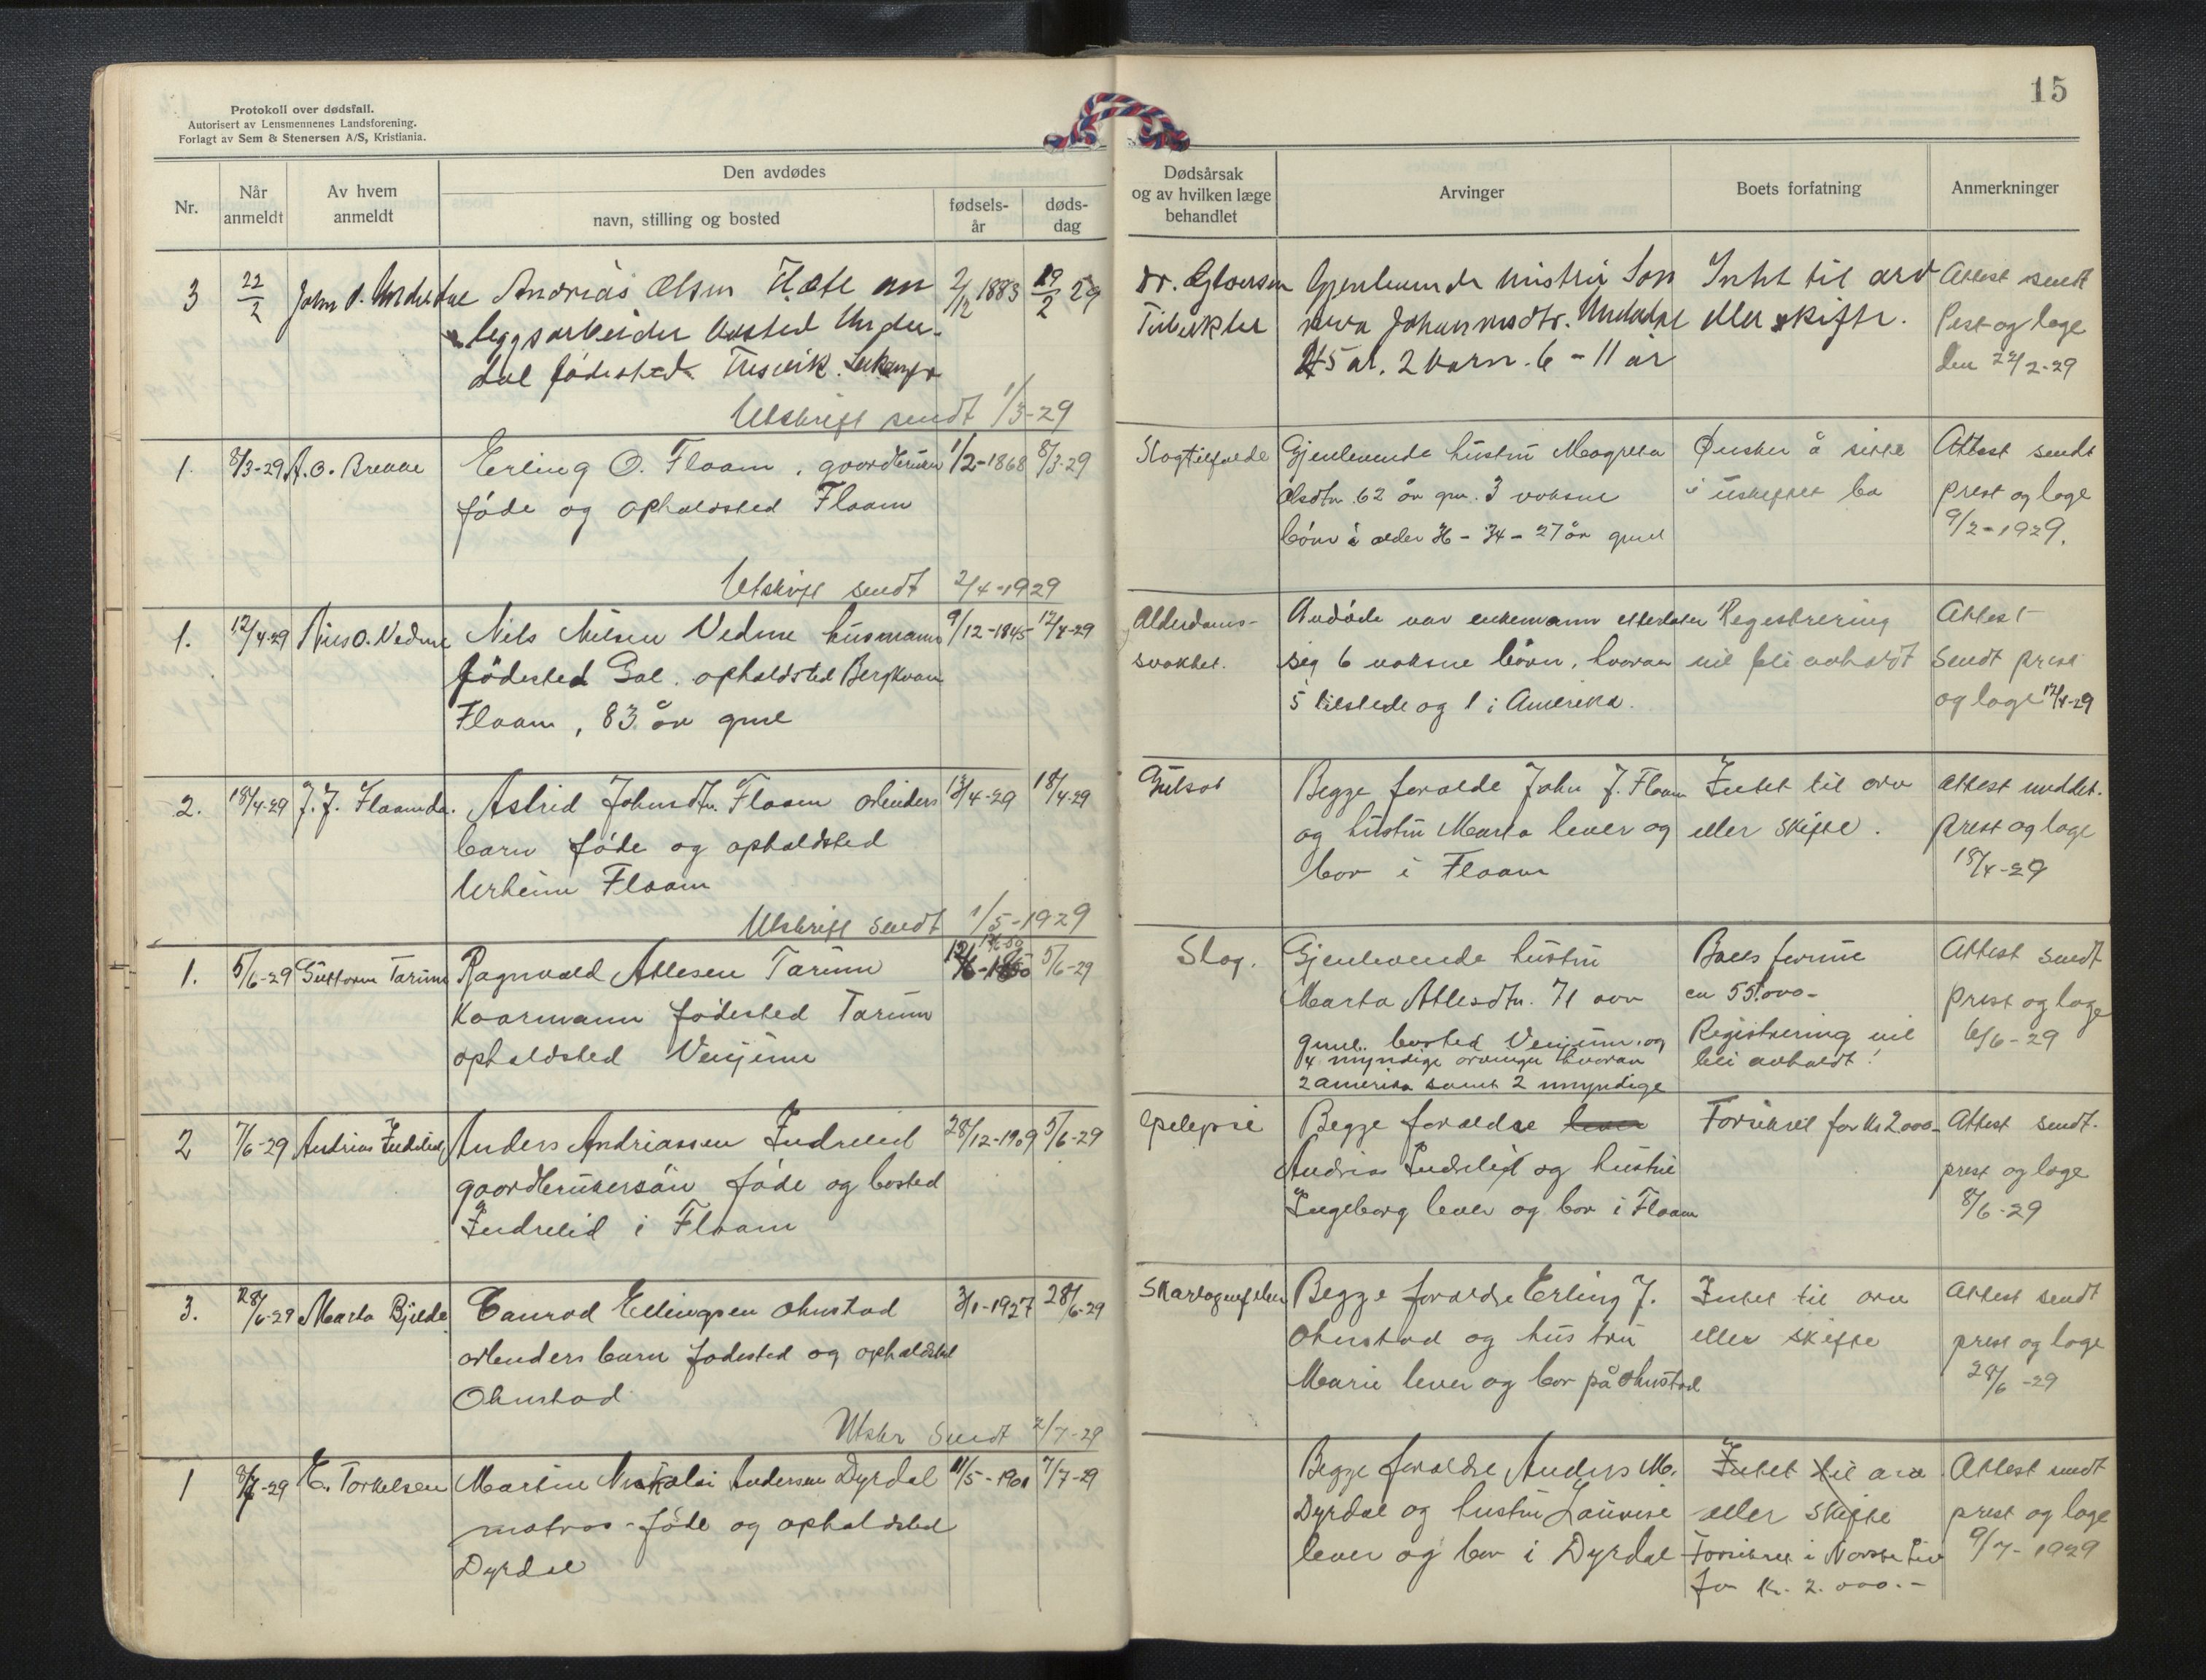 15
Protokoll over dødsfall.
Autorisert av Lensmennenes Landsforening.
Forlagt av Sem & Stenersen A/S, Kristiania.
Nr.
Når anmeldt
Av hvem anmeldt
Den avdødes
navn, stilling og bosted
fødsels-år
døds-dag
Dødsårsak og av hvilken læge behandlet
Arvinger
Boets forfatning
Anmerkninger
3 22/2 John Andrias Olsen an 2/12 1883 19/2 29
leggsarbeider bosted Under-
dal fødested
Utskrift sendt 1/3-29
Dr. Gjenlevende Intet til arv Attest sendt
Johannesdtr. Undedal eller skifte. Pest og læge
45 år. 2 barn. 6 - 11 år den 22/2-29
1. 8/3-29 A. O. Brekke Erling O. Flaam, gaardbruker 1/2-1868 8/3-29
føde og opholdsted Flaam
Utskrift sendt 2/4-1929
Slagtilfælde Gjenlevende hustru Magreta Ønsker å sitte Attest sendt
Olsdtr. 62 år gml. 3 voksne i uskiftet bo prest og læge
børn i alder 36 - 34 - 27 år gml 9/2-1929.
1. 12/4-29 O. Vedme Nils Nilsen Vedme husmann 9/12-1845 12/4-29
fødested Gol. opholdsted Bergkvam
Flaam, 83 år gml
Alderdoms- Avdøde var enkemann etterlater Registrering Attest
svakhet. sig 6 voksne børn, hvorav vil bli avholdt sendt prest
5 tilstede og 1 i Amerika. og læge 12/4-29
2. 18/4-29 J. J. Flaam Astrid Johnsdtr. Flaam arbeiders 13/4-29 18/4-29
barn føde og opholdsted
Urheim Flaam
Utskrift sendt 1/5-1929
Gulsot Begge foralde John J. Flaam Intet til arv attest meddet.
og hustru Marta lever og eller skifte. prest og læge
bor i Flaam 18/4-29
1. 5/6-29 Guttorm Tarum Ragnvald Atlesen Tarum 5/6-29
Kaarmann fødested Tarum
opholdsted Venjum
Slag. Gjenlevende hustru Boets formue Attest sendt
Marta Atlesdtr. 71 aar ca 55.000- prest og læge
gml. bosted Venjum. og Registrering vil 6/6-29
4 myndige arvinger hvorav bli avholdt!
2 amerika samt 2 umyndige
2 7/6-29 Andrias Indrelid Anders Andriassen Indrelid 28/12-1909 5/6-29
gaardbrukersøn føde og bosted
Indrelid i Flaam
Epelepsie Begge foraldre lever Forsikret for Kr 2000- Attest sendt.
Andrias Indrelid og hustru prest og læge
Ingeborg lever og bor i Flaam 8/6-29
3. 28/6-29 Marta Bjelde Conrad Ellingsen Ohnstad 3/1-1927 28/6-29
arbeiders barn fødested og opholdsted
Ohnstad
Utskr sendt 2/7-29
Skarlagensfeber Begge foraldre Erling J. Intet til arv attest sendt
Ohnstad og hustru eller skifte prest og læge
Marie lever og bor på Ohnstad 28/6-29
1 8/7-29 E. Torkelsen Martin Nikolai Andersen Dyrdal 11/5-1901 7/7-29
matros - føde og opholdsted
Dyrdal
Begge foraldre Anders M. Intet til arv Attest sendt
Dyrdal og hustru Lauvise eller skifte prest og læge
lever og bor i Dyrdal Forsikret i Norske Liv 9/7-1929
for Kr. 2.000.-